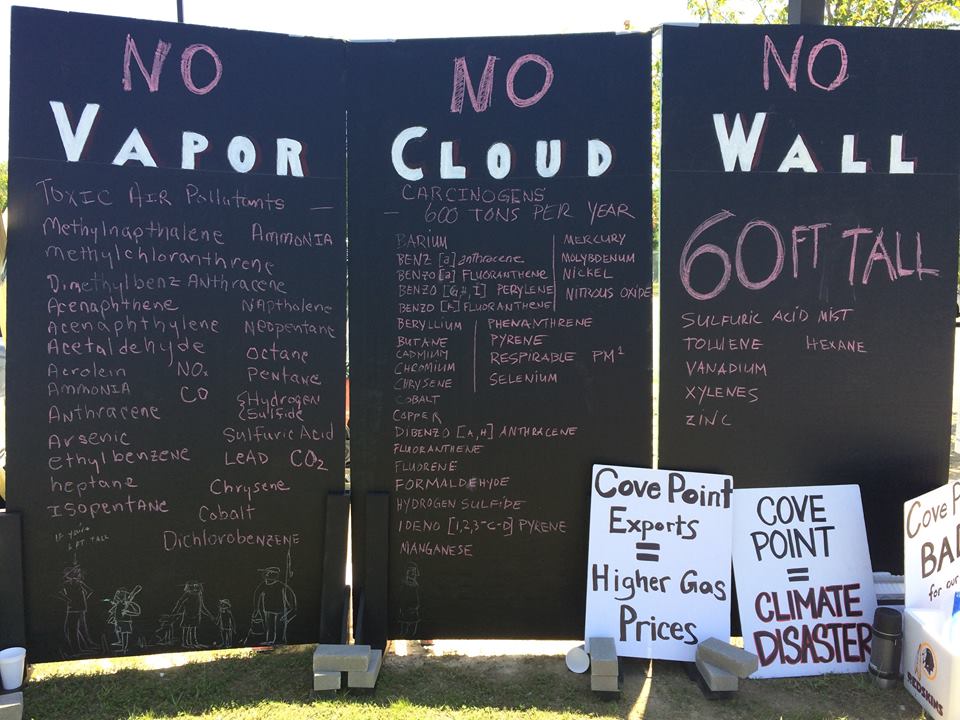 NO
VAPOR
TOXIC AIR Pollutants —
Methylnapthalene AMMONIA
methylchloranthrene
Dimethylbenz Anthracene
Acenaphthene Napthalene
Acenaphthylene Neopentane
Acetaldehyde Octane
Acrolein NOx Pentane
AMMONIA CO Hydrogen
Sulfide
Anthracene
Arsenic Sulfuric Acid
ethylbenzene LeAD CO2
heptane Chrysene
ISOPENTANE Cobalt
Dichlorobenzene
IF you're
6 FT TALL
NO
CLOUD
CARCINOGENS
— 600 TONS PER YEAR
BARIUM
BENZ [a] anthracene
BENZO [a] FLUORANTHENE
BENZO [G,H,I] PERYLENE
BENZO [K] FLUORANTHENE
MERCURY
MOLYBDENUM
NICKEL
NITROUS OXIDE
BERYLLIUM
BUTANE
CADMIUM
CHROMIUM
CHRYSENE
PHENANTHRENE
PYRENE
RESPIRABLE PM1
SELENIUM
COBALT
COPPER
DIBENZO [A,H] ANTHRACENE
FLUORANTHENE
FLUORENE
FORMALDEHYDE
HYDROGEN SULFIDE
IDENO [1,2,3-C-D] PYRENE
MANGANESE
NO
WALL
60 FT TALL
SULFURIC ACID MIST
TOLUENE HEXANE
VANADIUM
XYLENES
ZINC
Cove Point
Exports
=
Higher Gas
Prices
COVE
POINT
=
CLIMATE
DISASTER
Cove P
BAD
for our
REDSKINS